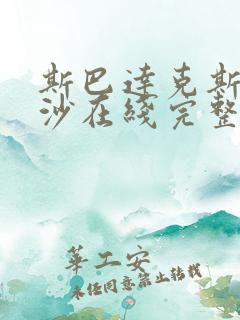 斯巴达克斯
沙在线完整
华工安
未经同意禁止转载